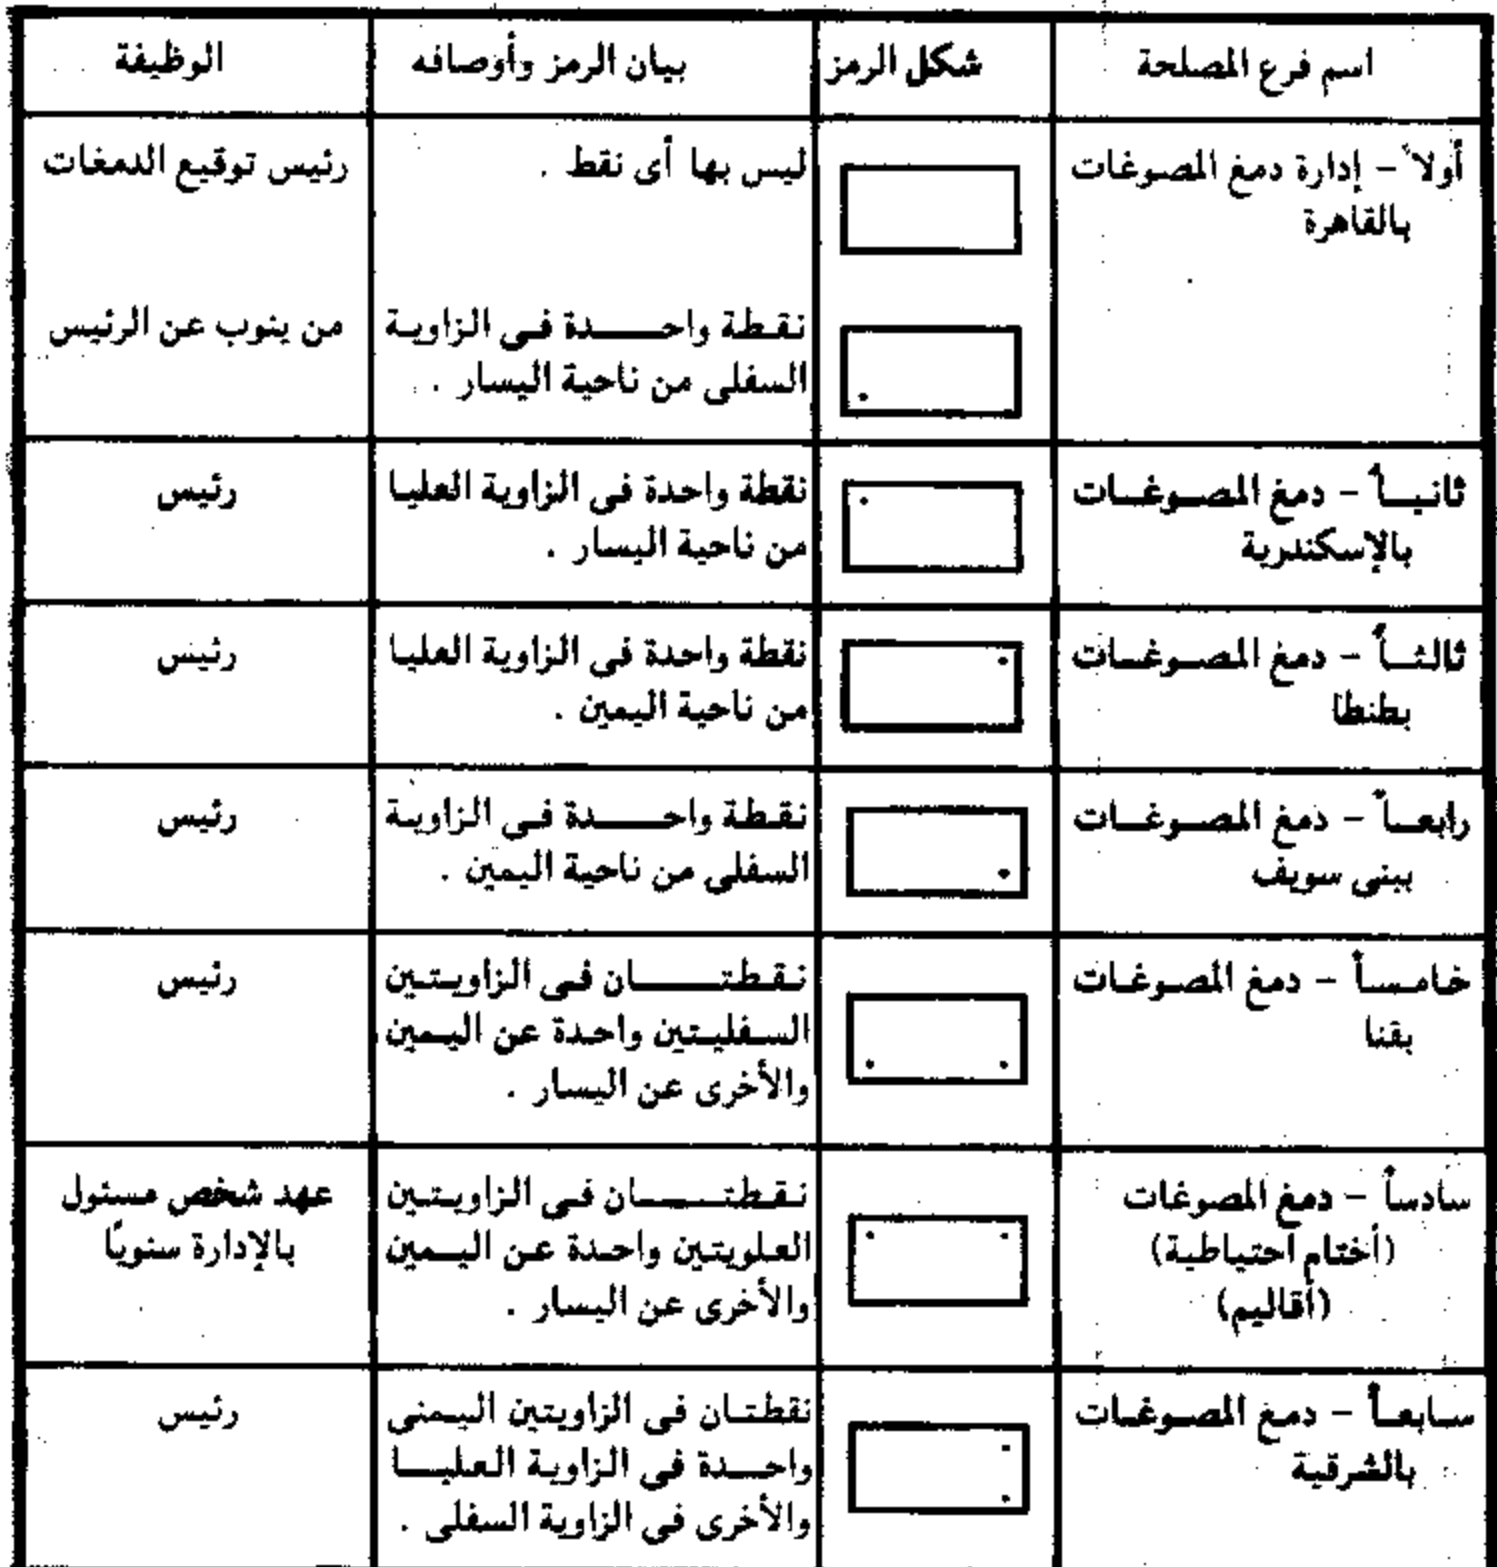 اسم فرع المصلحة
شكل الرمز
بيان الرمز وأوصافه
الوظيفة
أولاً - إدارة دمغ المصوغات
بالقاهرة
ليس بها أى نقط .
رئيس توقيع الدمغات
نقطة واحدة فى الزاوية
السفلى من ناحية اليسار .
من ينوب عن الرئيس
ثانياً - دمغ المصوغات
بالإسكندرية
نقطة واحدة فى الزاوية العليا
من ناحية اليسار .
رئيس
ثالثاً - دمغ المصوغات
بطنطا
نقطة واحدة فى الزاوية العليا
من ناحية اليمين .
رئيس
رابعاً - دمغ المصوغات
ببنى سويف
نقطة واحدة فى الزاوية
السفلى من ناحية اليمين .
رئيس
خامساً - دمغ المصوغات
بقنا
نقطتان فى الزاويتين
السفليتين واحدة عن اليمين
والأخرى عن اليسار .
رئيس
سادساً - دمغ المصوغات
(أختام احتياطية)
(أقاليم)
نقطتان فى الزاويتين
العلويتين واحدة عن اليمين
والأخرى عن اليسار .
عهد شخص مسئول
بالإدارة سنويًا
سابعاً - دمغ المصوغات
بالشرقية
نقطتان فى الزاويتين اليمنى
واحدة فى الزاوية العليا
والأخرى فى الزاوية السفلى .
رئيس